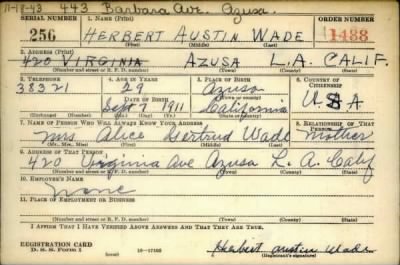 11-18-43 443 Barbara Ave. Azusa.
SERIAL NUMBER 1. NAME (Print) ORDER NUMBER
256 HERBERT AUSTIN WADE 1433
2. ADDRESS (Print)
420 VIRGINIA AZUSA L.A. CALIF.
(Number and street or R. F. D. number) (Town) (County) (State)
3. TELEPHONE 4. AGE IN YEARS 5. PLACE OF BIRTH 6. COUNTRY OF CITIZENSHIP
38321 29 Azusa
DATE OF BIRTH (Town or county) U.S.A
Sept 7 1911 California
(Exchange) (Number) (Mo.) (Day) (Yr.) (State or country)
7. NAME OF PERSON WHO WILL ALWAYS KNOW YOUR ADDRESS 8. RELATIONSHIP OF THAT PERSON
Mrs Alice Gertrud Wade Mother
(Mr., Mrs., Miss) (First) (Middle) (Last)
9. ADDRESS OF THAT PERSON
420 Virginia Ave Azusa L. A. Calif
(Number and street or R. F. D. number) (Town) (County) (State)
10. EMPLOYER'S NAME
none
11. PLACE OF EMPLOYMENT OR BUSINESS
(Number and street or R. F. D. number) (Town) (County) (State)
I AFFIRM THAT I HAVE VERIFIED ABOVE ANSWERS AND THAT THEY ARE TRUE.
REGISTRATION CARD
D. S. S. Form 1 16-17105 Herbert Austin Wade
(Registrant's signature)